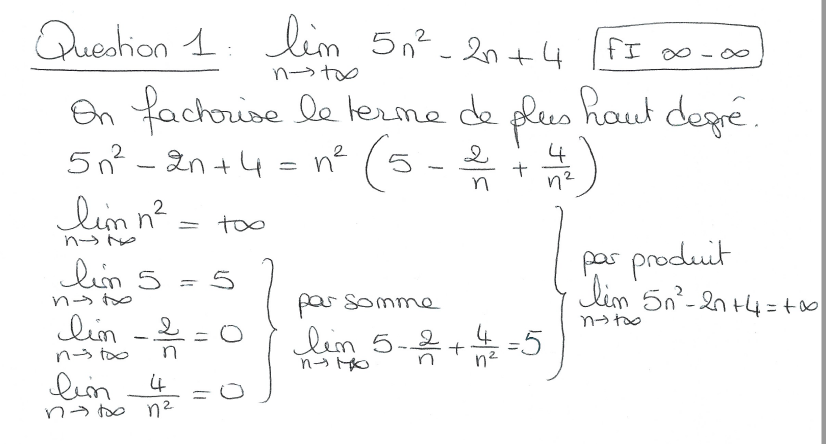 Question 1 : lim n→+∞ 5n² - 2n + 4 FI ∞ - ∞
On factorise le terme de plus haut degré.
5n² - 2n + 4 = n² (5 - 2/n + 4/n²)
lim n→+∞ n² = +∞
lim n→+∞ 5 = 5
lim n→+∞ - 2/n = 0
lim n→+∞ 4/n² = 0
par somme
lim n→+∞ 5 - 2/n + 4/n² = 5
par produit
lim n→+∞ 5n² - 2n + 4 = +∞